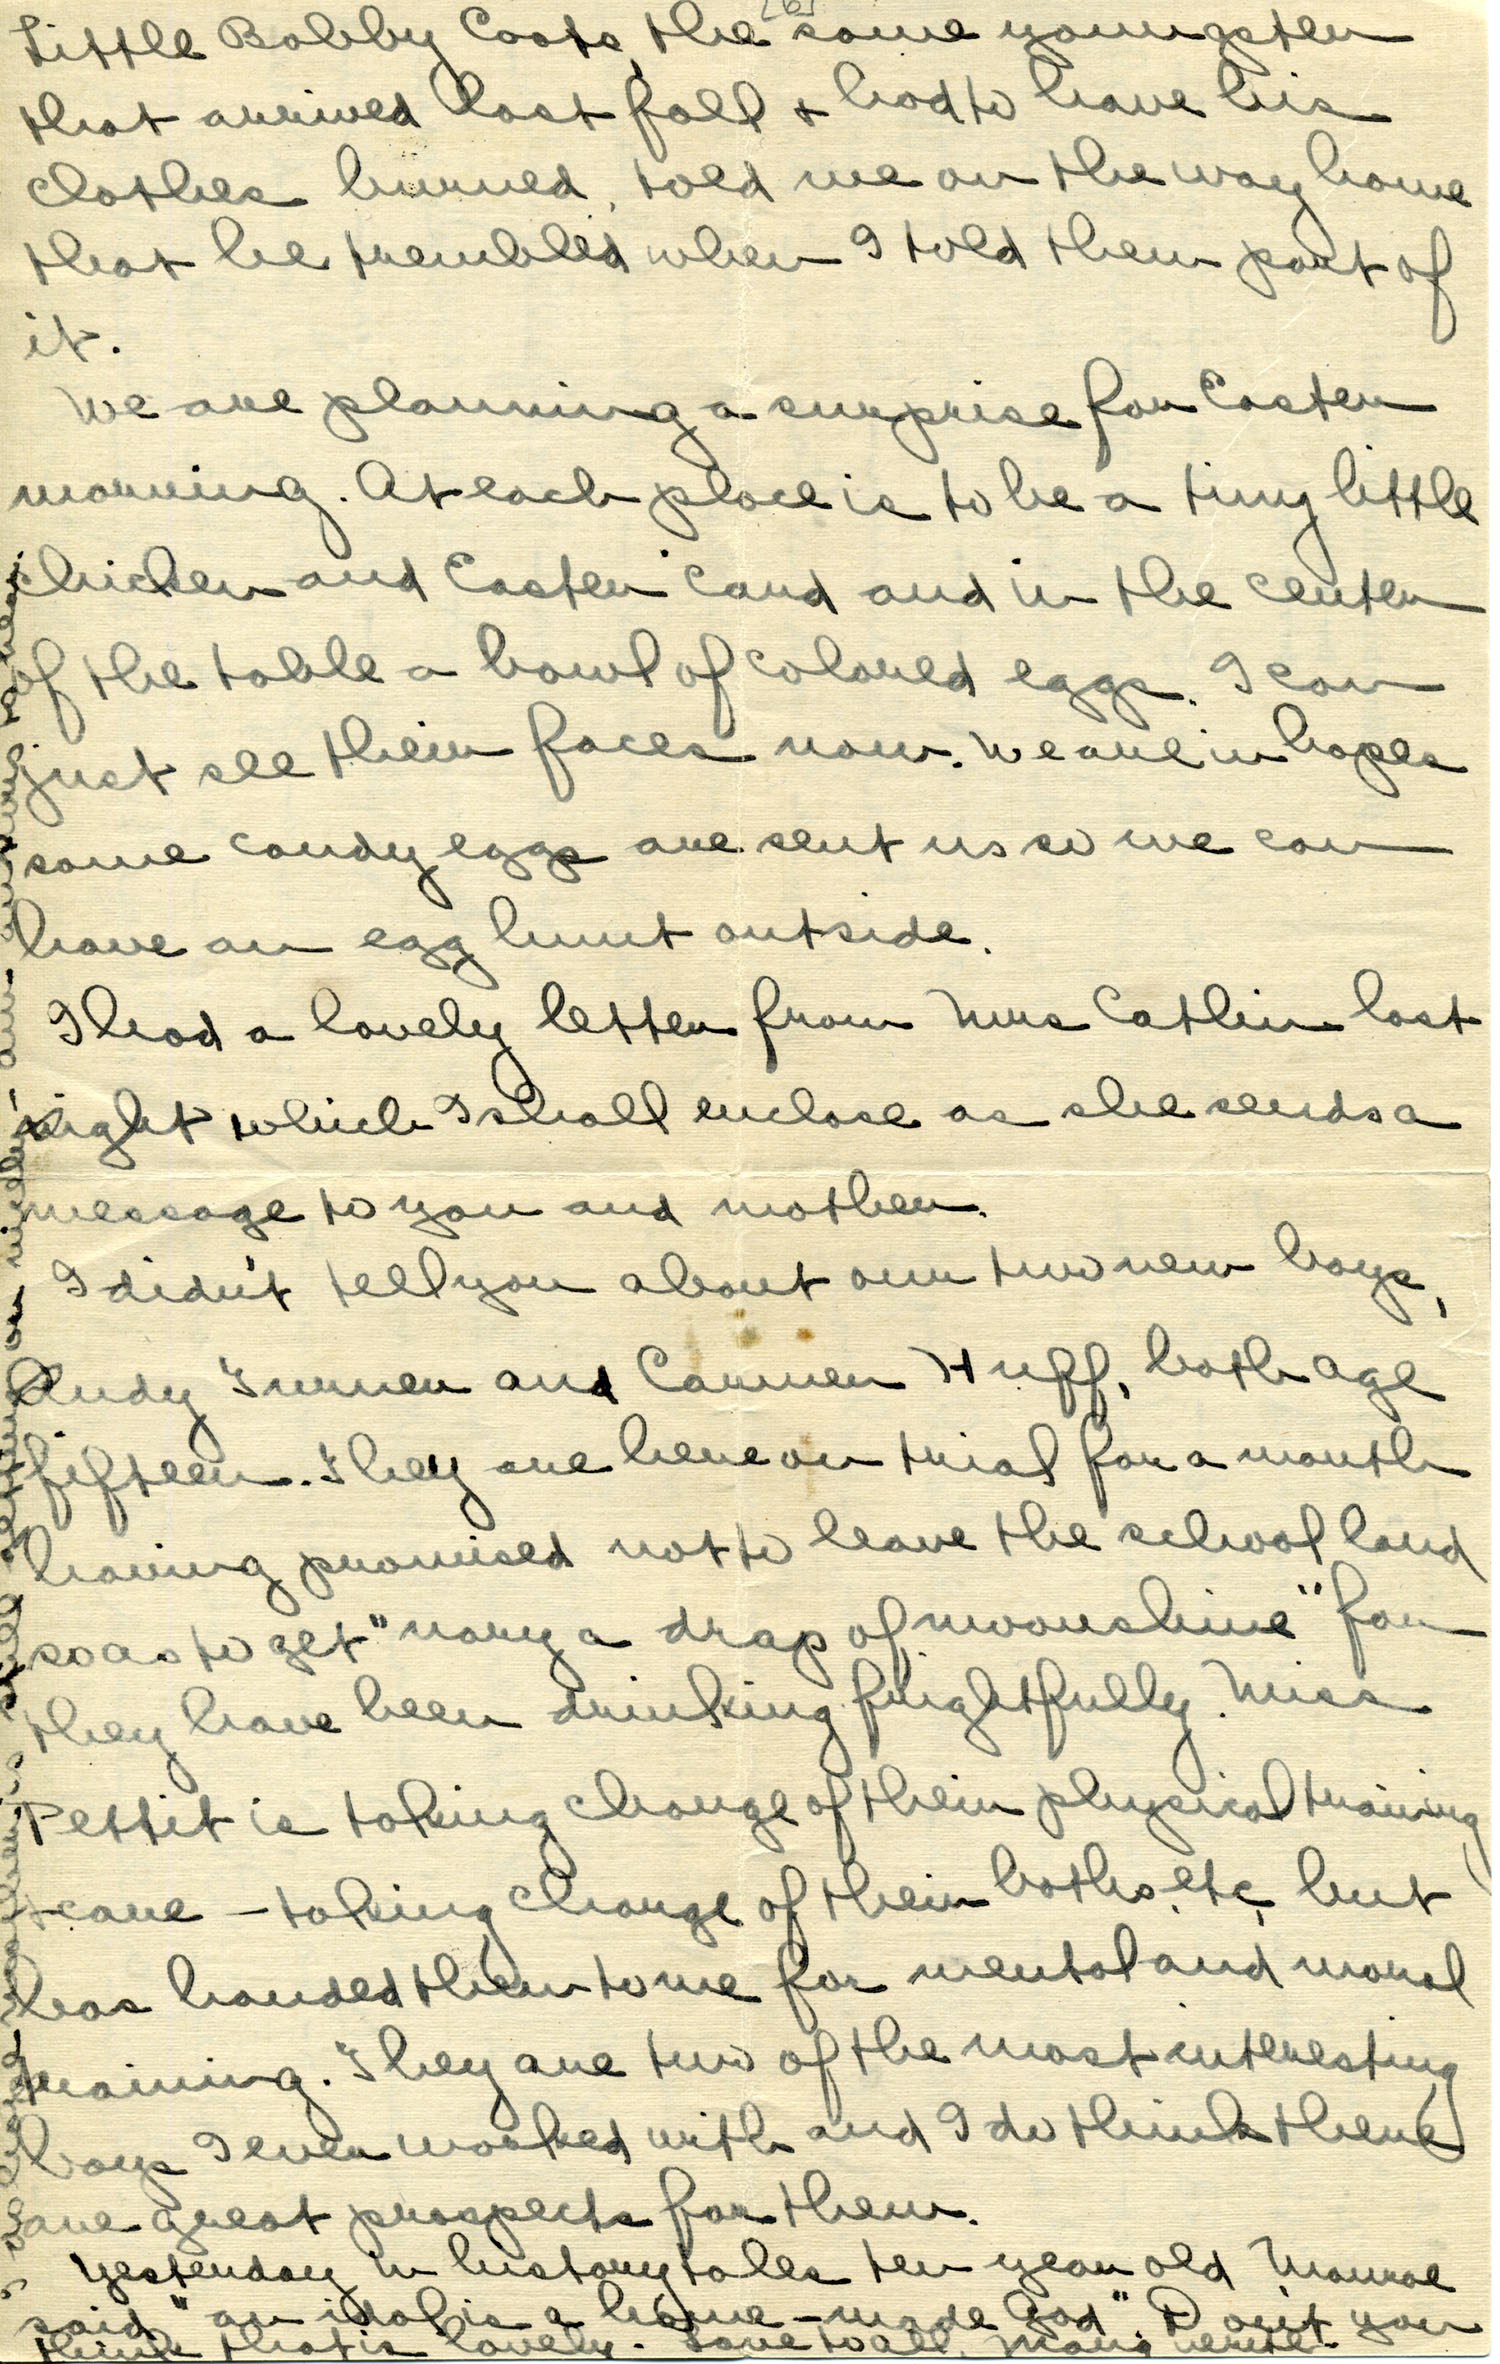 [6]
Little Bobby Coots, the same youngster
that arrived last fall + had to have his
clothes burned, told me on the way home
that he trembled when I told them part of
it.
We are planning a surprise for Easter
morning. At each place is to be a tiny little
chicken and Easter card and in the center
of the table a bowl of colored eggs. I can
just see their faces now. We are in hopes
some candy eggs are sent us so we can
have an egg hunt outside.
I had a lovely letter from Mrs Catlin last
night which I shall enclose as she sends a
message to you and mother.
I didn't tell you about our two new boys,
Andy Turner and Carmen Huff, both age
fifteen. They are here on trial for a month
having promised not to leave the school land
so as to get "nary a drap of moonshine" for
they have been drinking frightfully. Miss
Pettit is taking charge of their physical training
+ care - taking charge of their baths, etc, but
has handed them to me for mental and moral
training. They are two of the most interesting
boys I ever worked with and I do think there
are great prospects for them.
Yesterday in history tales ten year old Monroe
said "an idol is a home-made God". Don't you
think that is lovely. Love to all,
still getting on nicely - am anxious to hear.